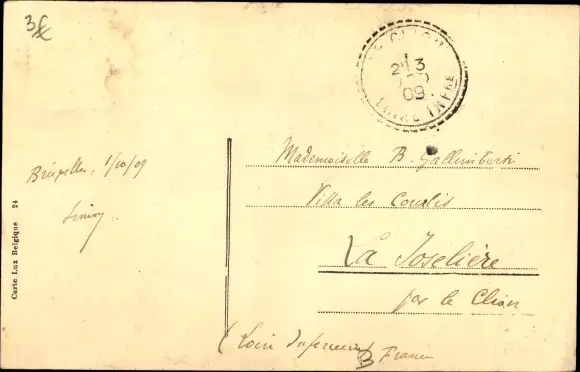 3€
LE CLION
2 3
09
LOIRE INFRE
Bruxelles, 1/10/09
Simon
Carte Lux Belgique 24
Mademoiselle B. Gallimberti
Villa les Courlis
La Joselière
par le Clion
(Loire Inférieure) France